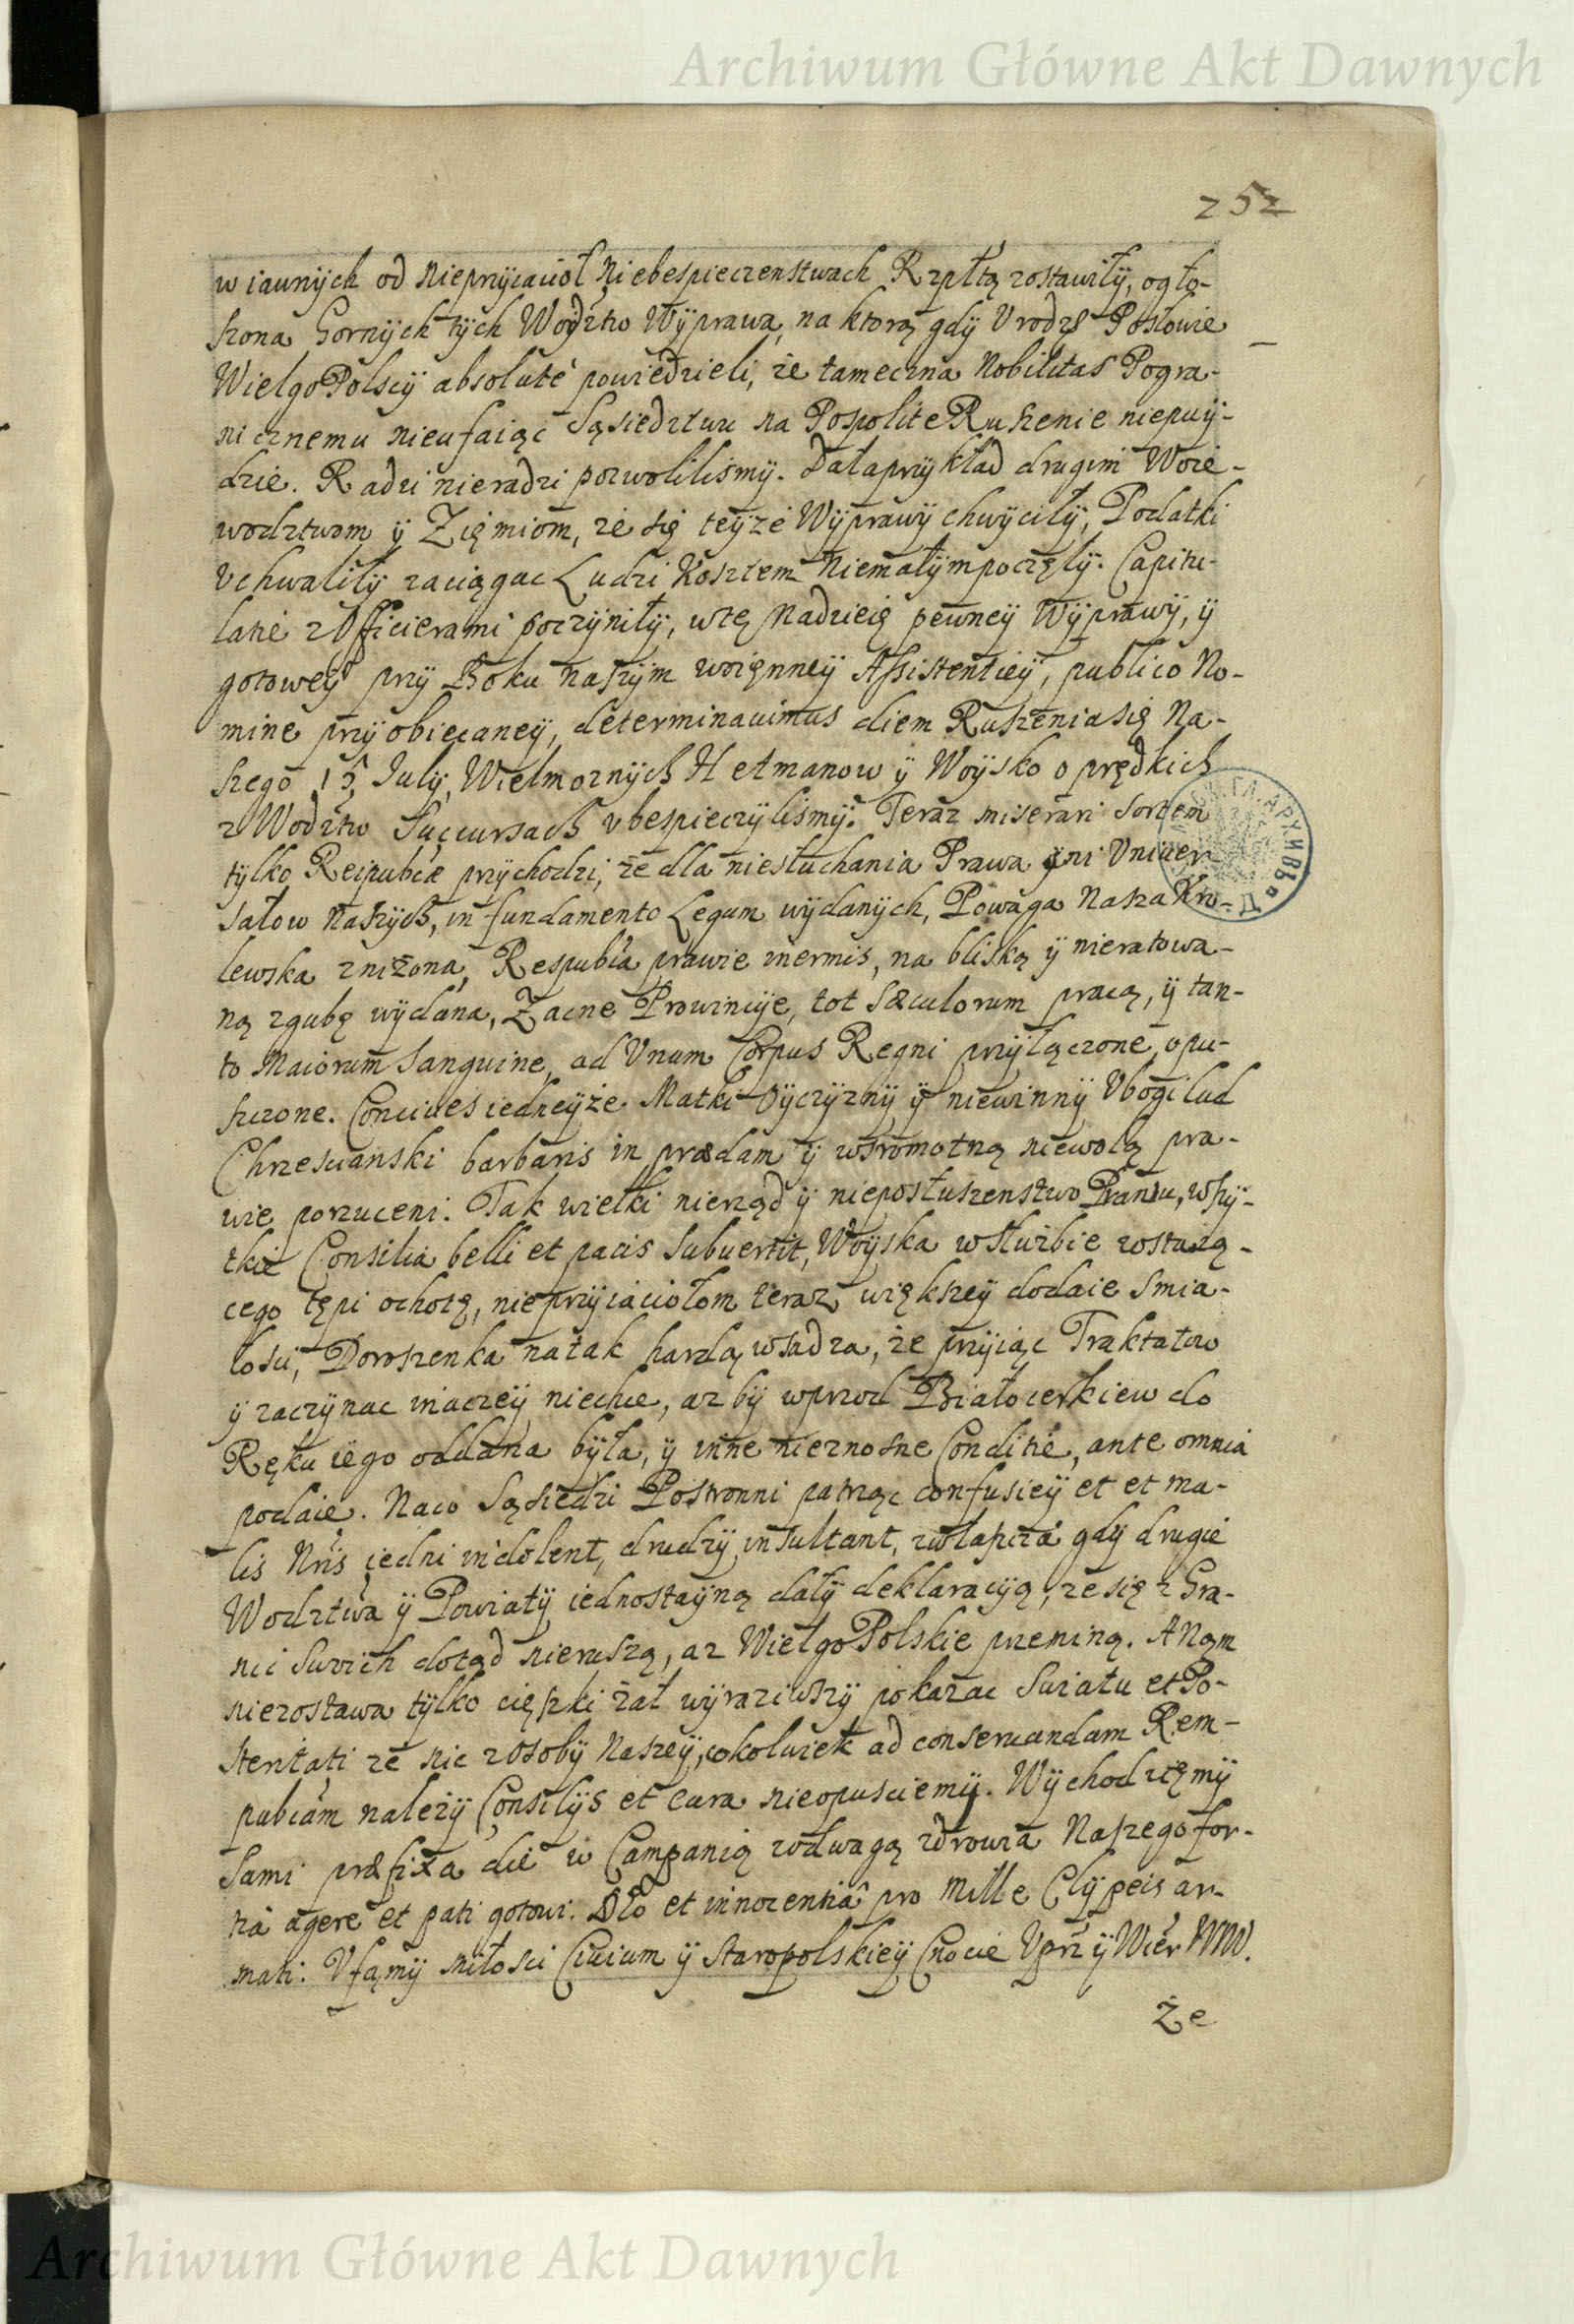 Archiwum Główne Akt Dawnych
252
w iawnÿch od Nieprzÿiacioł Niebespieczenstwach Rzpłtą zostawiłÿ, ogło-
szona Gornÿch tÿch Wodztw Wÿprawa, na ktorą gdÿ Vrodz Posłowie
WielgoPolscÿ absoluté powiedzieli, że tameczna Nobilitas Pogra-
nicznemu nieufaiąc Sąsiedztwu na Pospolite Ruszenie niepuÿ-
dzie. Radzi nieradzi pozwoliliśmÿ. Dała przÿkład drugim Woie-
wodztwom ÿ Zięmiom, że się teÿże Wÿprawÿ chwÿciłÿ, Podatki
Vchwaliłÿ zaciągac Ludzi Kosztem Niemałÿm poczęłÿ. Capitu-
latie z Officierami poczÿniłÿ, w tę Nadzieię pewneÿ Wÿprawÿ, ÿ
gotoweÿ przÿ Boku naszÿm woięnneÿ Assistentieÿ, publico No-
mine przÿobiecaneÿ, determinauimus diem Ruszenia się Na-
szego 15 Julÿ, Wielmoznÿch Hetmanow ÿ Woÿsko o prędkich
z Wodztw Succursach vbespieczÿlismÿ. Teraz miserari sortem
tÿlko Reipubcæ przÿchodzi, że dla niesłuchania Prawa ÿni Vniuer
sałow Naszÿch, in fundamento Legum wÿdanÿch, Powaga Nasza Kro-
lewska zniżona, Respubca prawie inermis, na bliską ÿ nieratowa-
ną zgubę wÿdana, Zacne Prowincÿe, tot Sæculorum pracą, ÿ tan-
to Maiorum Sanguine, ad Vnum Corpus Regni przÿłączone opu-
szczone. Conciues iedneÿże Matki Oÿczÿznÿ ÿ niewinnÿ Vbogi lud
Chrzescianski barbaris in prædam ÿ w sromotną niewolą pra-
wie porzuceni. Tak wielki nierząd ÿ nieposłuszenstwo Prawu, wszÿ-
tkie Consilia belli et pacis Subuertit, Woÿska w służbie zostaią-
cego tępi ochotę, nieprzÿiaciołom teraz większeÿ dodaie smia-
łosci, Doroszenka na tak hardą wsadza, że przÿiąc Traktatow
ÿ zaczÿnac inaczeÿ niechce, az bÿ wprzod Białocerkiew do
Ręku iego oddana bÿła, ÿ inne nieznosne Conditie, ante omnia
podaie. Na co Sąsiedzi Postronni patrząc confusieÿ et et ma-
lis Nris iedni indolent, drudzÿ insultant, zwłaszcza gdÿ drugie
Wodztwa ÿ Powiatÿ iednostaÿną dałÿ deklaracÿą, że się z Gra-
nic Swoich dotąd nieruszą, az WielgoPolskie przeminą. A Nąm
niezostawa tÿlko ciężki żal wÿraziwszÿ pokazac Swiatu et Po-
steritati ze nic z Osobÿ Naszeÿ, cokolwiek ad conseruandam Rem-
pubcam należÿ Consilÿs et cura nieopusciemÿ. Wÿchodzięmÿ
Sami præfixa die w Campanią z odwagą zdrowia Naszego for-
tia agere et pati gotowi. DEo et innocentiâ pro mille Clÿpeis ar-
mati. Vfąmÿ miłosci Ciuium ÿ Staropolskieÿ Cnocie Vprz ÿ Wier WW.
Że
Archiwum Główne Akt Dawnych